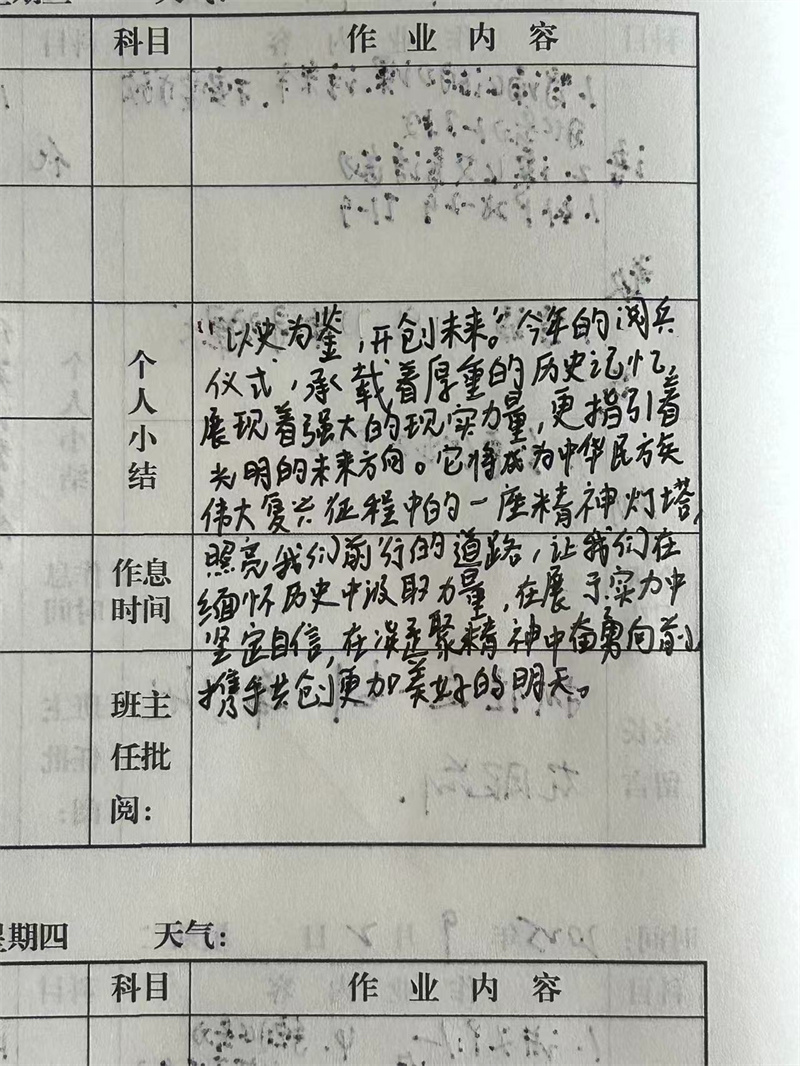 科目 作业内容
个人小结
"以史为鉴,开创未来。"今年的阅兵
仪式,承载着厚重的历史记忆,
展现着强大的现实力量,更指引着
光明的未来方向。它将成为中华民族
伟大复兴征程中的一座精神灯塔,
照亮我们前行的道路,让我们在
缅怀历史中汲取力量,在展示实力中
坚定自信,在凝聚精神中奋勇向前,
携手共创更加美好的明天。
作息
时间
班主
任批
阅:
星期四 天气:
科目 作业内容